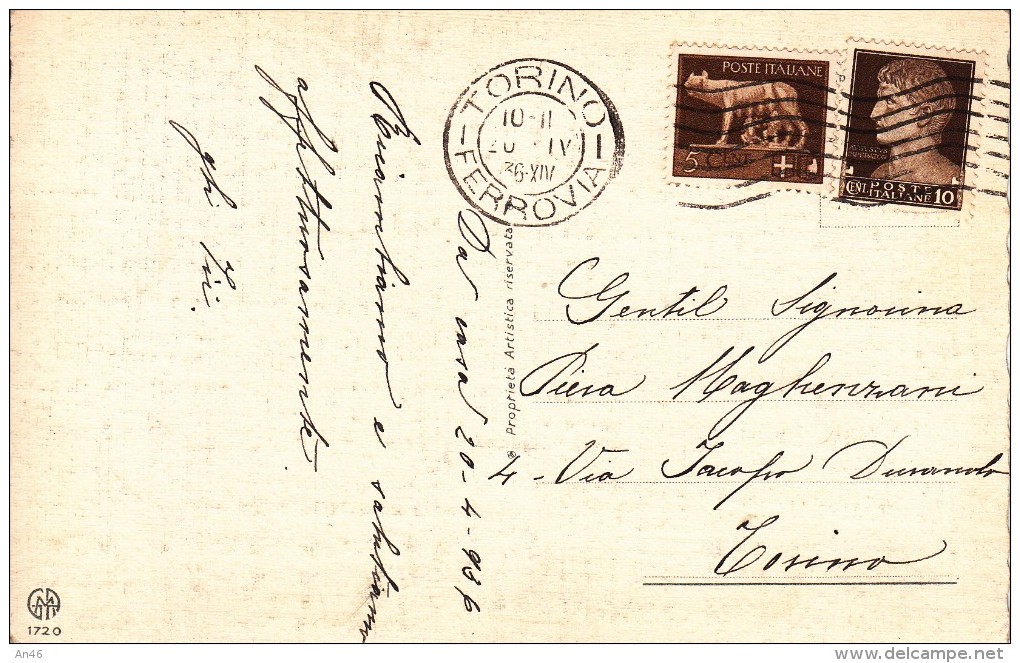 Da casa 20-4-936
Ricambiamo e salutiamo
affettuosamente
TORINO
10-11
20 IV
36-XIV
FERROVIA
POSTE ITALIANE
5 CENT
CENT POSTE
ITALIANE 10
Gentil Signorina
Piera Maghenzani
4 - Via Jacopo Durando
Torino
® Proprietà Artistica riservata
1720
An46
delcampe.net